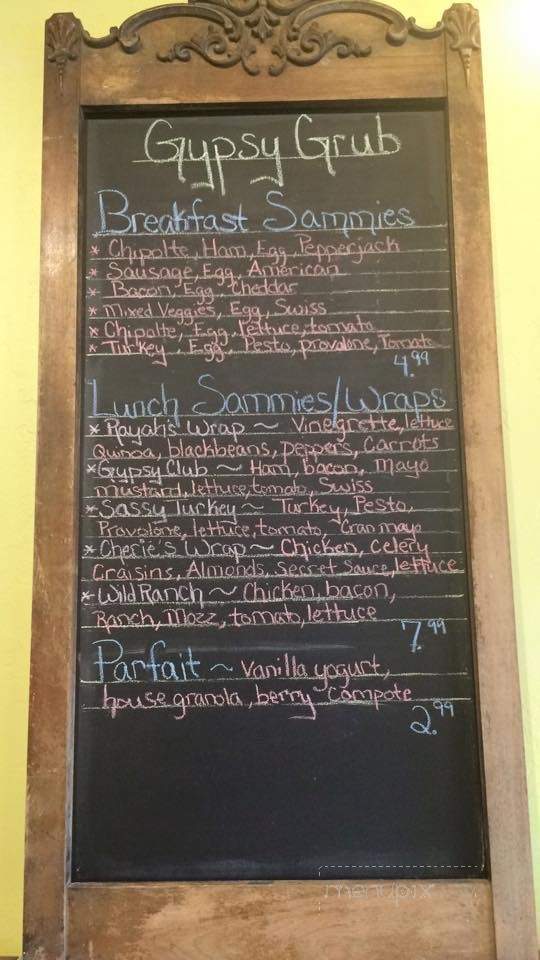 Gypsy Grub
Breakfast Sammies
* Chipolte, Ham, Egg, Pepperjack
* Sausage, Egg, American
* Bacon, Egg, Cheddar
* Mixed Veggies, Egg, Swiss
* Chipolte, Egg, lettuce, tomato
* Turkey, Egg, Pesto, provalone, Tomato
4.99
Lunch Sammies/Wraps
* Rayah's Wrap ~ Vinegrette, lettuce
Quinoa, blackbeans, peppers, Carrots
* Gypsy Club ~ Ham, bacon, Mayo
mustard, lettuce, tomato, Swiss
* Sassy Turkey ~ Turkey, Pesto,
Provolone, lettuce, tomato, Cran mayo
* Cherie's Wrap ~ Chicken, Celery
Craisins, Almonds, Secret Sauce, lettuce
* Wild Ranch ~ Chicken, bacon,
Ranch, Mozz, tomato, lettuce
7.99
Parfait ~ Vanilla yogurt,
house granola, berry compote
2.99
menupix